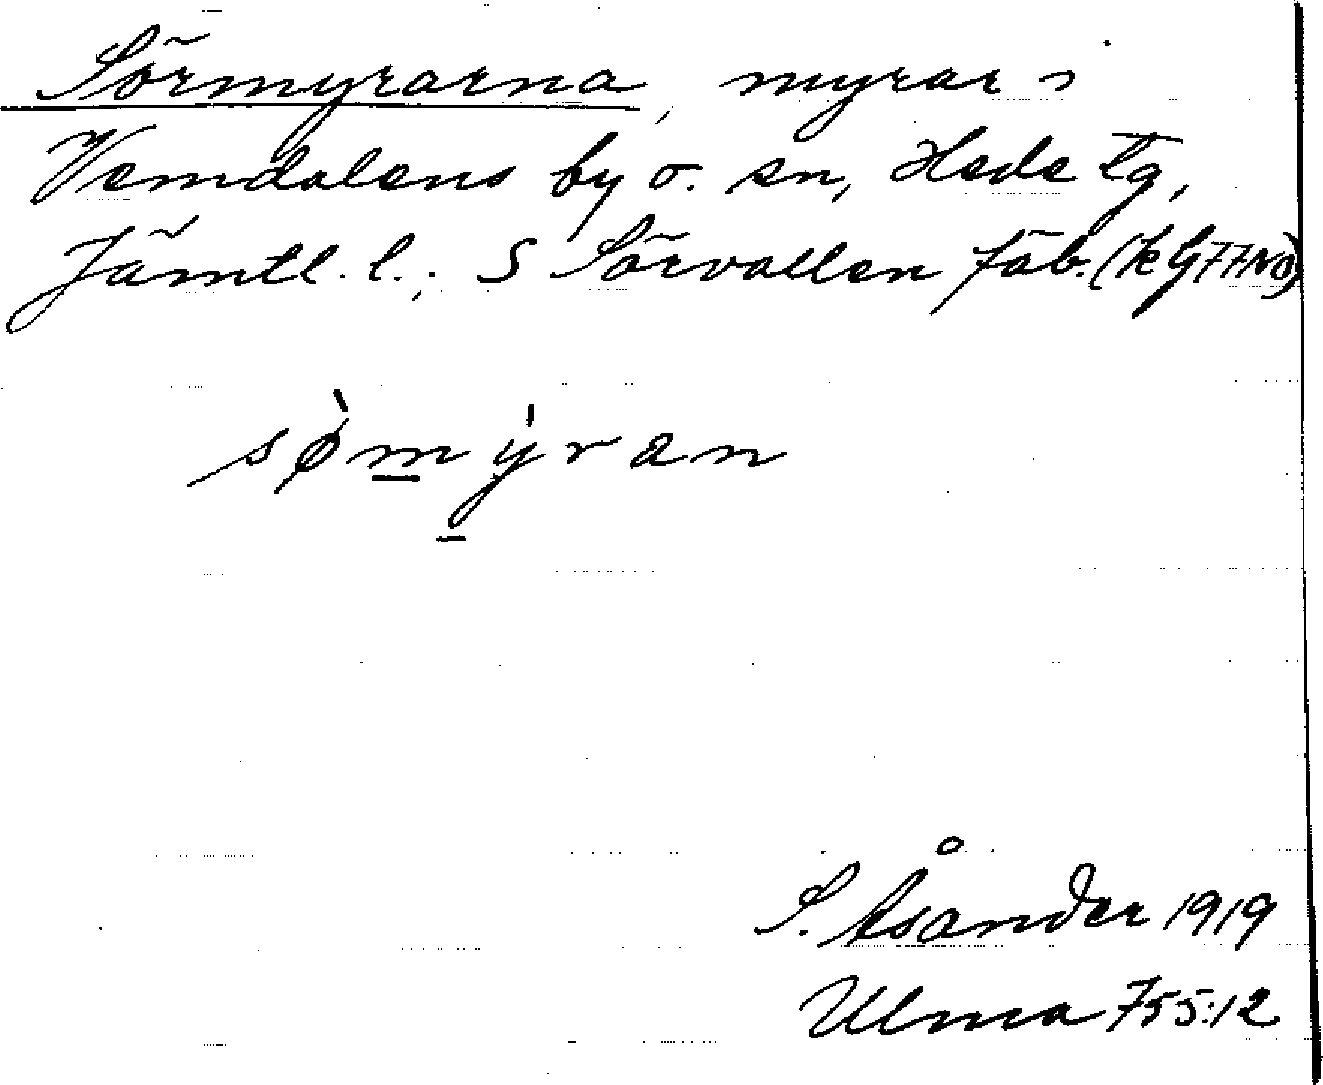 Sörmyrarna, myrar i
Vemdalens by o. sn, Hede tg,
Jämtl. l.; S Sörvallen fäb. (k G77NO)
sø̀mýran
S. Åsander 1919
Ulma 755:12